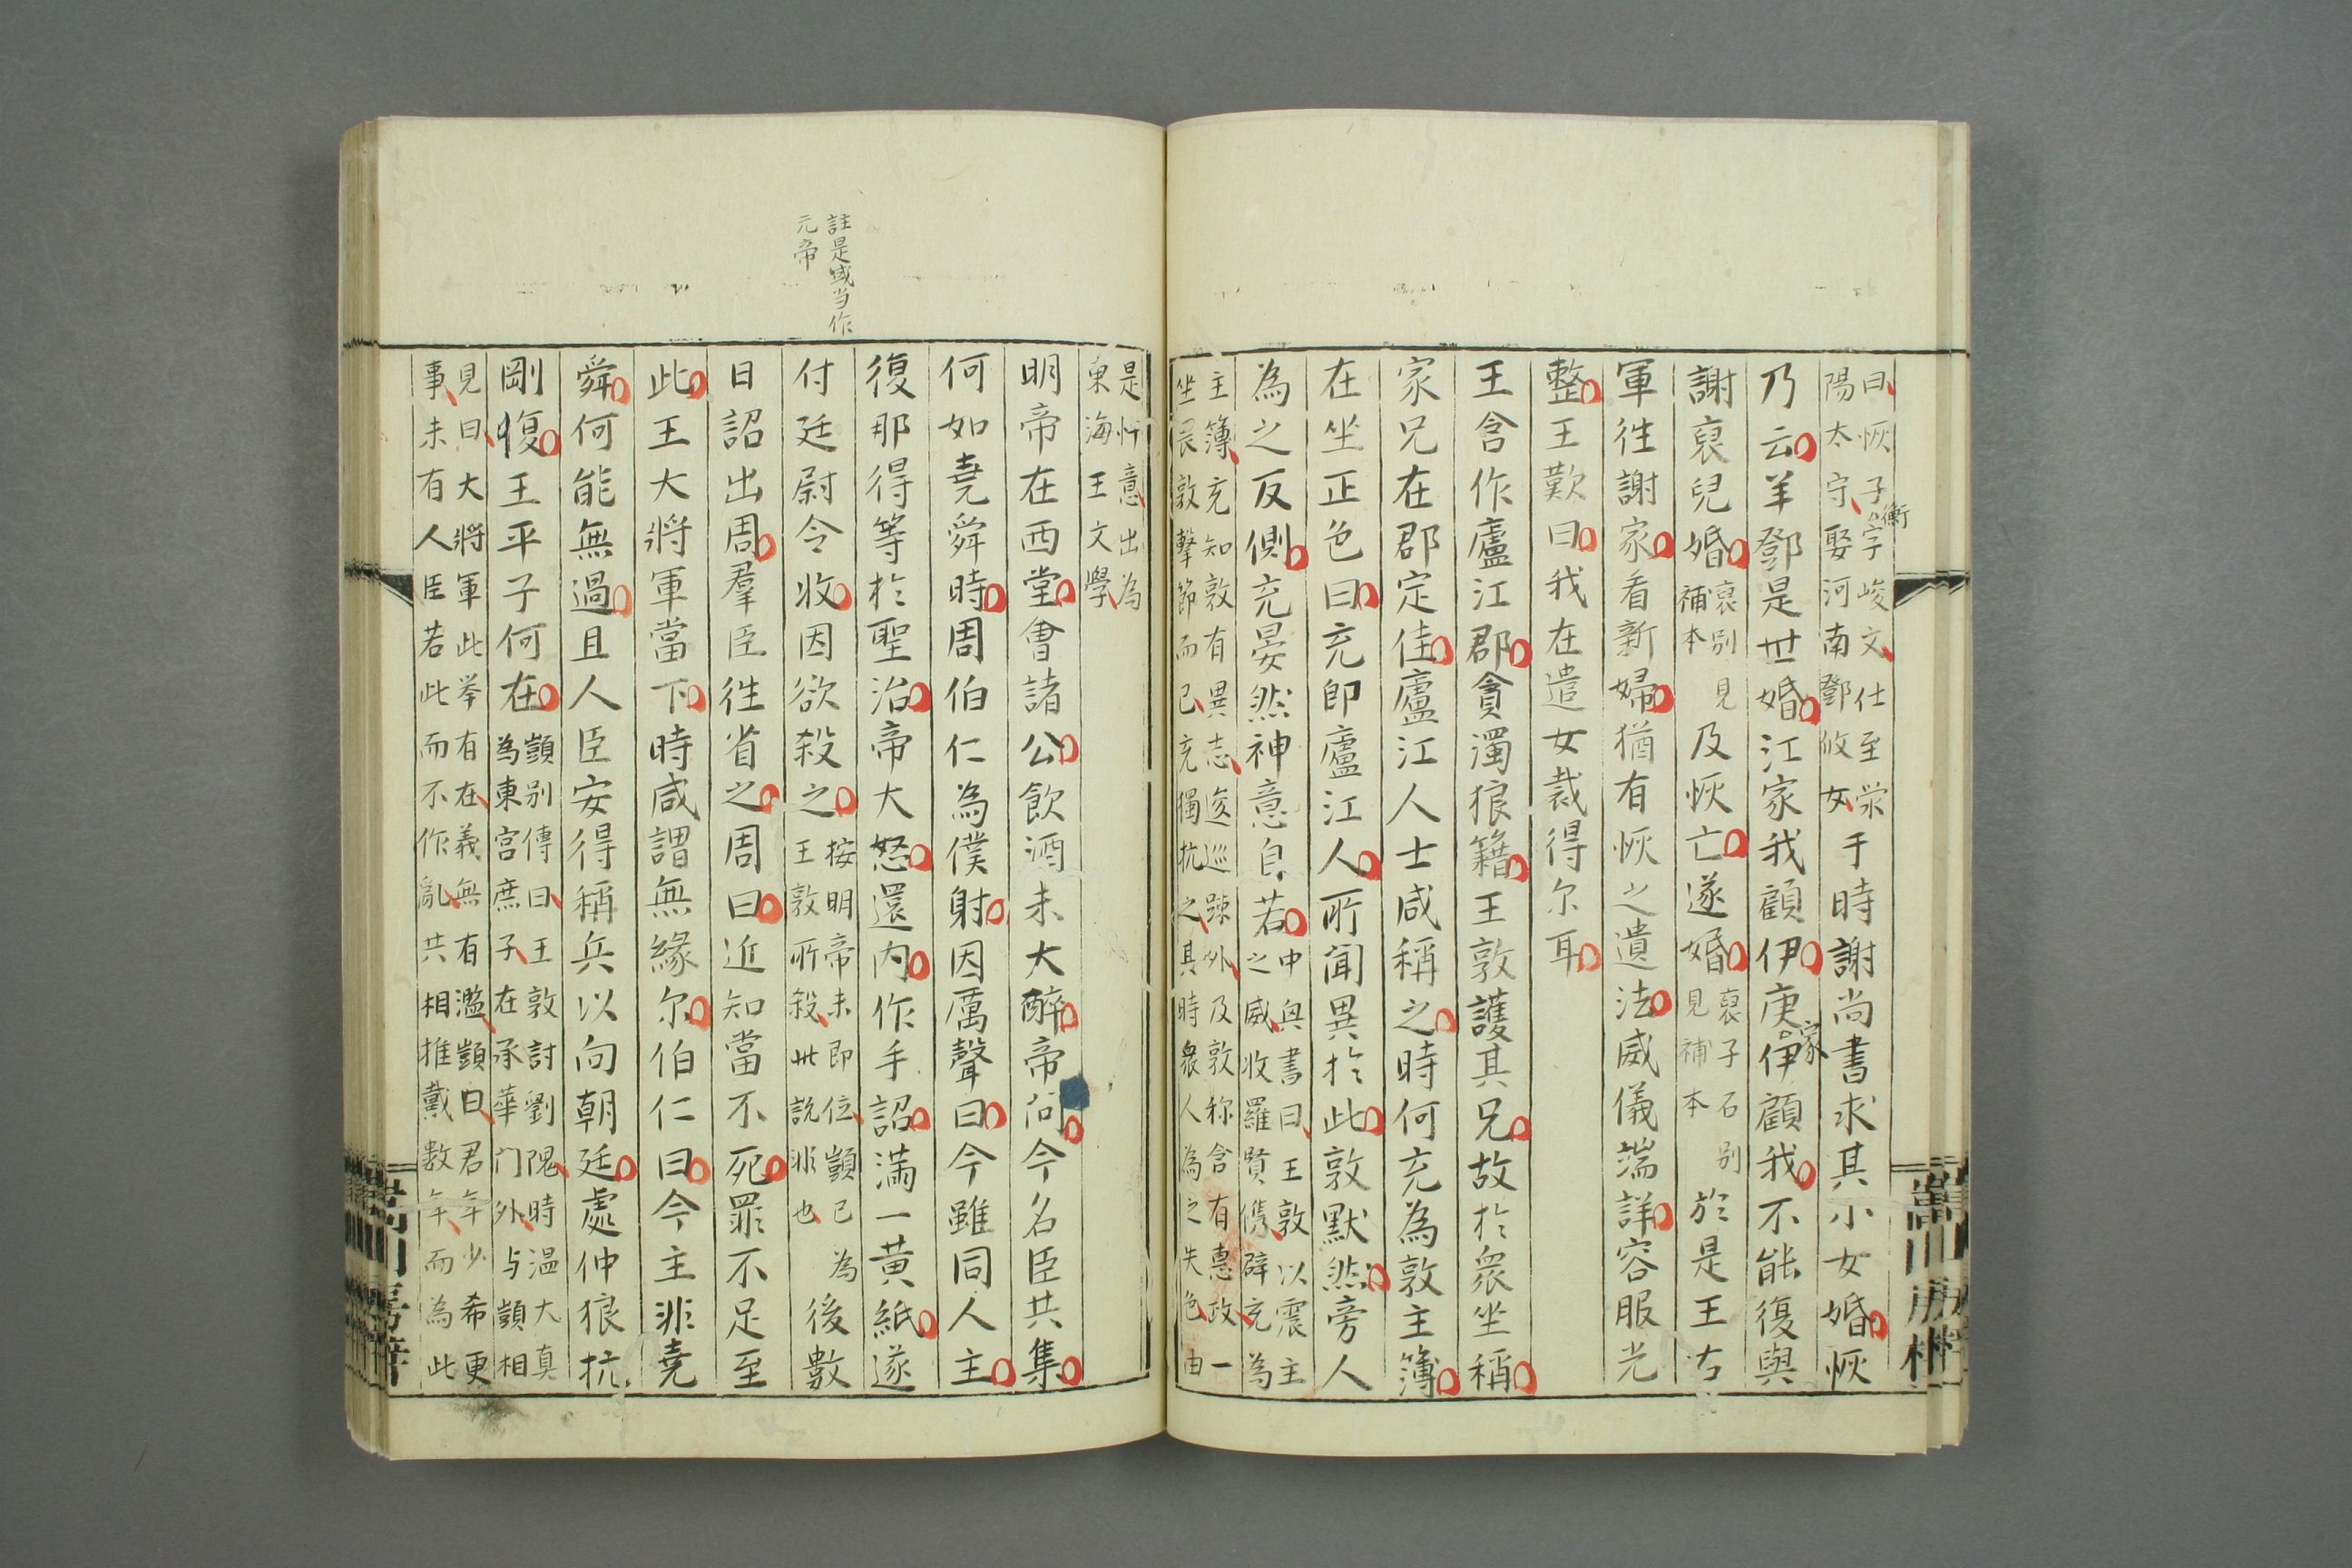 曰恢子衡字峻文仕至滎
陽太守娶河南鄧攸女
于時謝尚書求其小女婚恢
乃云羊鄧是世婚江家我顧伊庾家伊顧我不能復與
謝裒兒婚
裒別見
補本
及恢亡遂婚
裒子石別
見補本
於是王右
軍往謝家看新婦猶有恢之遺法威儀端詳容服光
整王歎曰我在遣女裁得尔耳
王含作廬江郡貪濁狼籍王敦護其兄故於衆坐稱
家兄在郡定佳廬江人士咸稱之時何充為敦主簿
在坐正色曰充即廬江人所聞異於此敦默然旁人
為之反側充晏然神意自若
中興書曰王敦以震主
之威收羅賢儁辟充為
主簿充知敦有異志逡巡踈外及敦称含有惪政一
坐畏敦擊節而已充獨抗之其時衆人為之失色由
是忤意出為
東海王文學
明帝在西堂會諸公飲酒未大醉帝问今名臣共集
何如堯舜時周伯仁為僕射因厲聲曰今雖同人主
復那得等於聖治帝大怒還內作手詔滿一黃紙遂
付廷尉令收因欲殺之
按明帝未即位顗已為
王敦所殺此説非也
後數
日詔出周羣臣往省之周曰近知當不死罪不足至
此王大將軍當下時咸謂無緣尔伯仁曰今主非堯
舜何能無過且人臣安得稱兵以向朝廷處仲狼抗
剛愎王平子何在
顗别傳曰王敦討劉隗時温大真
為東宮庶子在承華门外与顗相
見曰大將軍此举有在義無有濫顗曰君年少希更
事未有人臣若此而不作亂共相推戴數年而為此
註是或当作
元帝